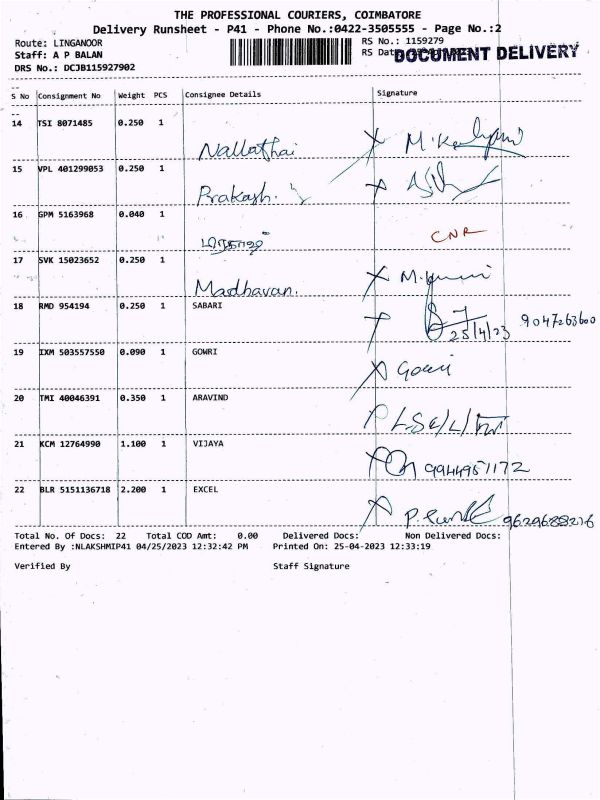 THE PROFESSIONAL COURIERS, COIMBATORE
Delivery Runsheet - P41 - Phone No.:0422-3505555 - Page No.:2
Route: LINGANOOR
RS No.: 1159279
Staff: A P BALAN
RS Dat
DOCUMENT DELIVERY
DRS No.: DCJB115927902
S No Consignment No Weight PCS Consignee Details Signature
14 TSI 8071485 0.250 1
Nallathai
15 VPL 401299053 0.250 1
Prakash.
16 GPM 5163968 0.040 1
CNR
17 SVK 15023652 0.250 1
Madhavan.
18 RMD 954194 0.250 1 SABARI
25/4/23 9047263600
19 IXM 503557550 0.090 1 GOWRI
Gowri
20 TMI 40046391 0.350 1 ARAVIND
21 KCM 12764990 1.100 1 VIJAYA
9944951172
22 BLR 5151136718 2.200 1 EXCEL
9629688276
Total No. Of Docs: 22 Total COD Amt: 0.00 Delivered Docs: Non Delivered Docs:
Entered By :NLAKSHMIP41 04/25/2023 12:32:42 PM Printed On: 25-04-2023 12:33:19
Verified By Staff Signature